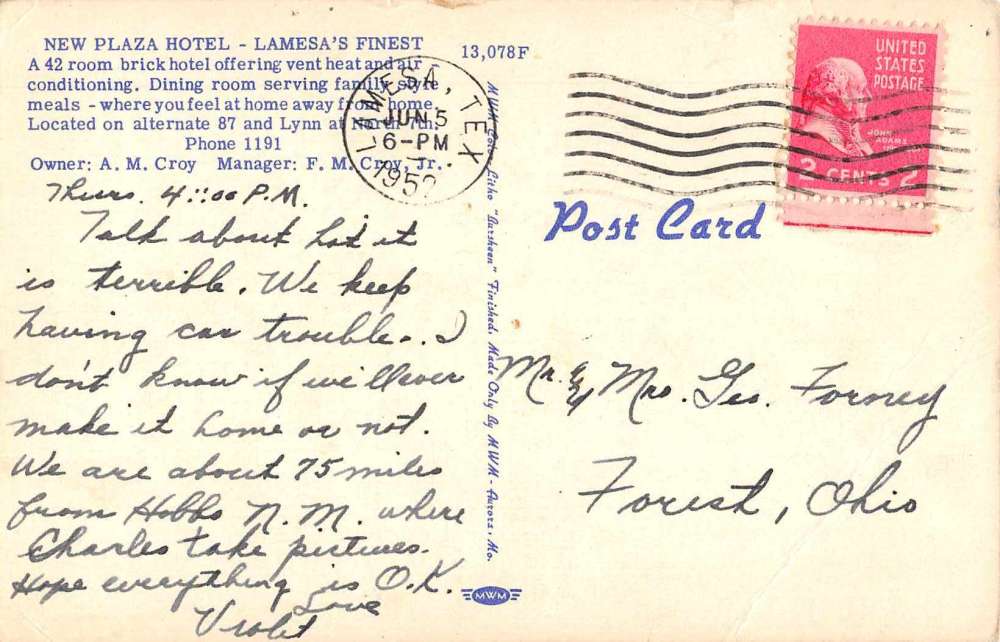 NEW PLAZA HOTEL - LAMESA'S FINEST
A 42 room brick hotel offering vent heat and air
conditioning. Dining room serving family style
meals - where you feel at home away from home.
Located on alternate 87 and Lynn at North 7th.
Phone 1191
Owner: A. M. Croy Manager: F. M. Croy, Jr.
13,078F
LAMESA, TEX
JUN 5
6-PM
1952
UNITED
STATES
POSTAGE
JOHN
ADAMS
2 CENTS 2
Post Card
Thurs. 4::00 P.M.
Talk about hot it
is terrible. We keep
having car trouble.. I
don't know if we'll ever
make it home or not.
We are about 75 miles
from Hobbs N.M. where
Charles take pictures.
Hope everything is O.K.
Love
Violet
Mr. & Mrs. Geo. Forney
Forest, Ohio
MWM Color-Litho "Larsheen" Finished. Made Only By MWM - Aurora, Mo.
MWM